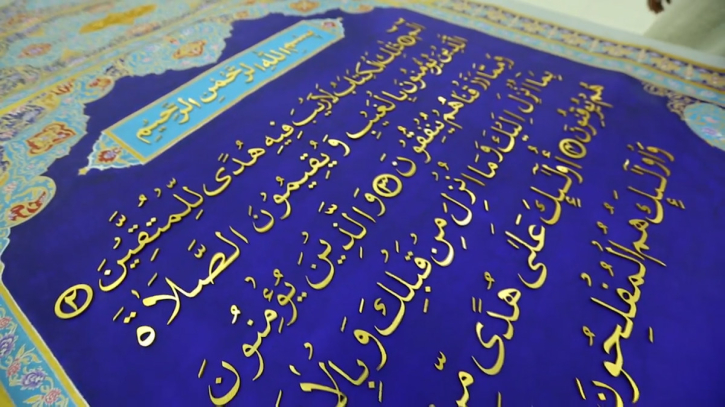 بِسْمِ اللهِ الرَّحْمٰنِ الرَّحِيمِ
الٓمٓ ۝ ذٰلِكَ الْكِتَابُ لَا رَيْبَ فِيهِ هُدًى لِلْمُتَّقِينَ ۝٢
الَّذِينَ يُؤْمِنُونَ بِالْغَيْبِ وَيُقِيمُونَ الصَّلَاةَ
وَمِمَّا رَزَقْنَاهُمْ يُنْفِقُونَ ۝٣ وَالَّذِينَ يُؤْمِنُونَ
بِمَا أُنْزِلَ إِلَيْكَ وَمَا أُنْزِلَ مِنْ قَبْلِكَ وَبِالْأ
هُمْ يُوقِنُونَ ۝ أُولٰئِكَ عَلَىٰ هُدًى مِ
وَأُولٰئِكَ هُمُ الْمُفْلِحُونَ